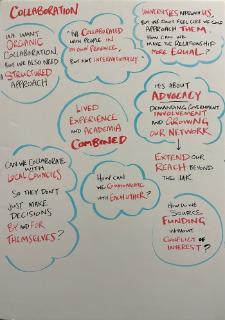 COLLABORATION
WE WANT
ORGANIC
COLLABORATION
BUT WE ALSO NEED
A STRUCTURED
APPROACH
"WE COLLABORATED
WITH PEOPLE IN
BUT NOT INTERNATIONALLY"
UNIVERSITIES APPROACH US,
BUT WE DON'T FEEL LIKE WE COULD
APPROACH THEM.
HOW CAN WE
MAKE THE RELATIONSHIP
MORE EQUAL?
LIVED
EXPERIENCE
AND ACADEMIA
COMBINED
IT'S ABOUT
ADVOCACY
DEMANDING GOVERNMENT
INVOLVEMENT
AND GROWING
OUR NETWORK
EXTEND OUR
REACH BEYOND
THE UK
CAN WE COLLABORATE
WITH
LOCAL COUNCILS
SO THEY DON'T
JUST MAKE
DECISIONS
BY AND FOR
THEMSELVES?
HOW CAN
WE COMMUNICATE
WITH EACH OTHER?
HOW DO WE
SOURCE
FUNDING
WITHOUT
CONFLICT OF
INTEREST?